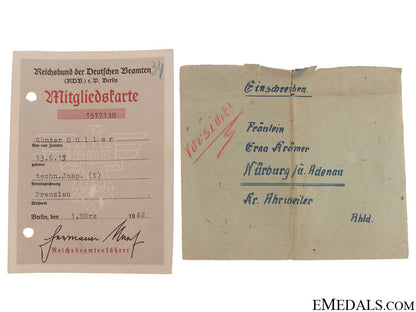 Reichsbund der Deutschen Beamten
(RDB) e.V. Berlin
34
Mitgliedskarte
1517738
Günter Müller
Vor- und Zuname
13.6.17
geboren
techn.Insp. (K)
Amtsbezeichnung
Prenzlau
Wohnort
Berlin, den 1.März 1942
Hermann Neef
Reichsbeamtenführer
Einschreiben.
Vorsicht!
Fräulein
Erna Krämer
Nürburg/ü. Adenau
Kr. Ahrweiler
Rhld.
EMEDALS.COM